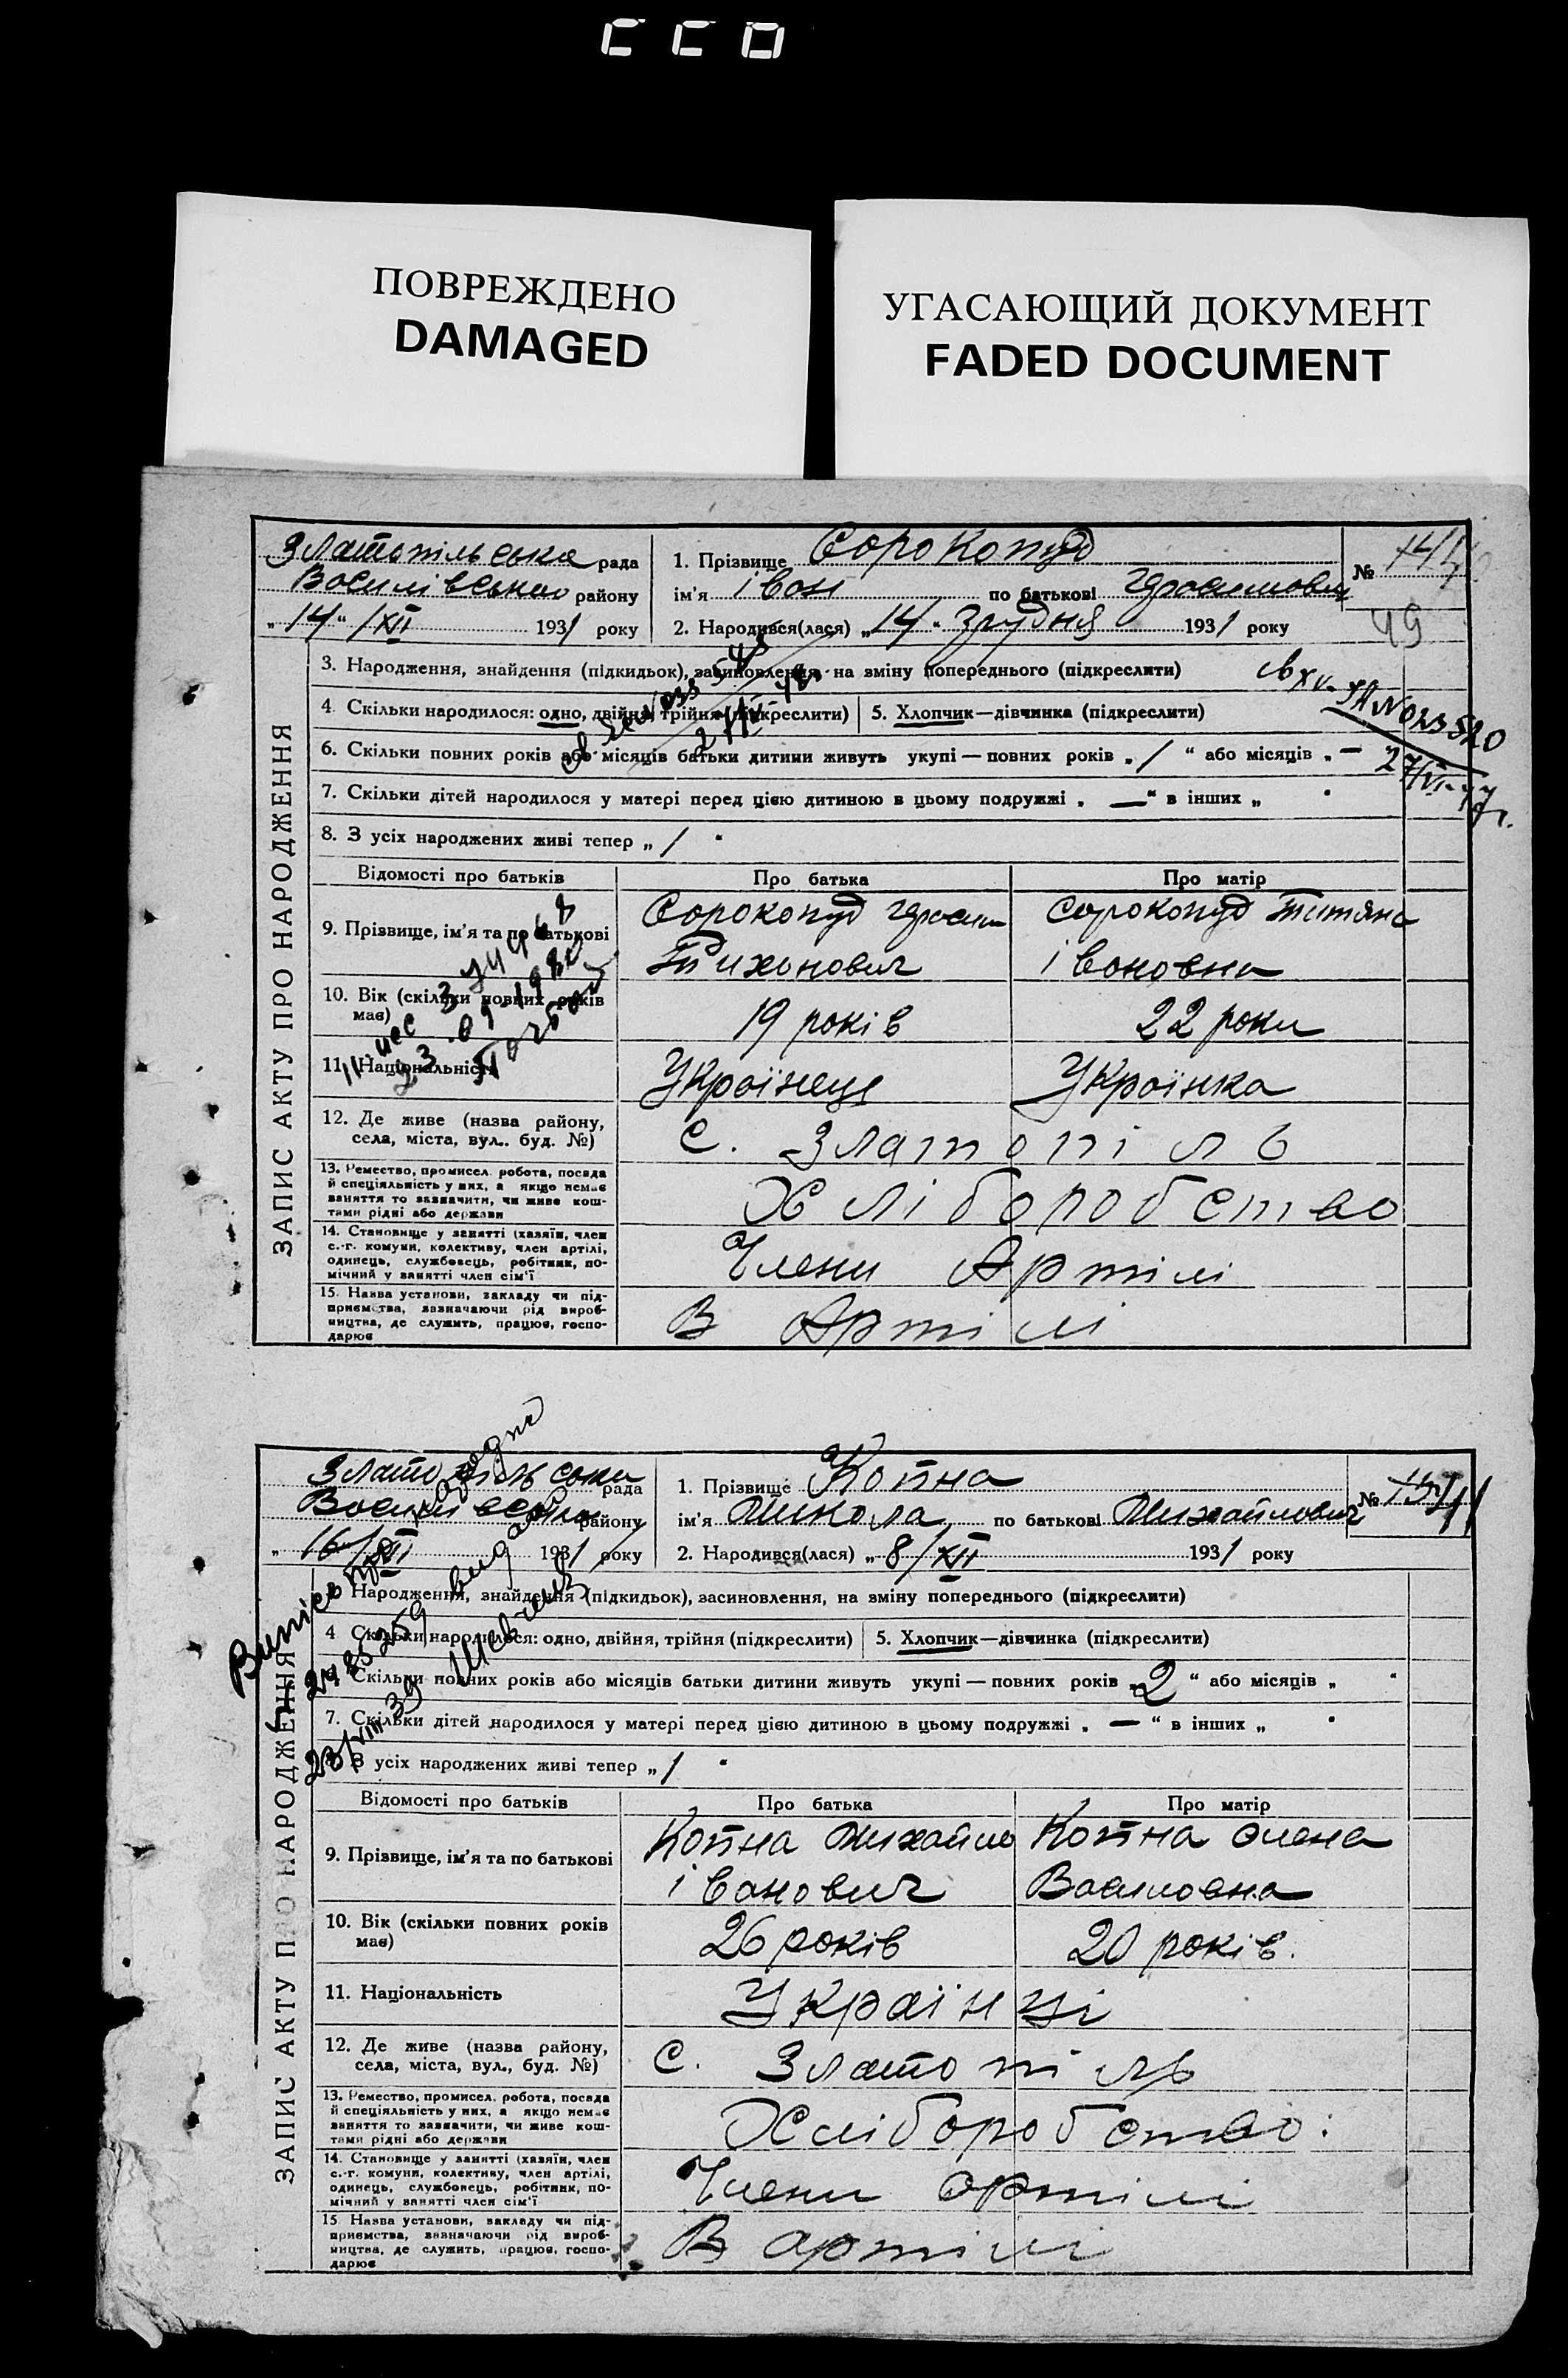 ПОВРЕЖДЕНО
DAMAGED
УГАСАЮЩИЙ ДОКУМЕНТ
FADED DOCUMENT
ЗАПИС АКТУ ПРО НАРОДЖЕННЯ
Златопільська рада
району
„14“ /XII 1931 року
1. Прізвище Сорокопуд
ім'я іван по батькові
2. Народився(лася) „14“ Грудня 1931 року
№
49
3. Народження, знайдення (підкидьок), засиновлення, на зміну попереднього (підкреслити)
4 Скільки народилося: одно, двійня, трійня (підкреслити) 5. Хлопчик—дівчинка (підкреслити)
6. Скільки повних років або місяців батьки дитини живуть укупі — повних років „1“ або місяців „—
7. Скільки дітей народилося у матері перед цією дитиною в цьому подружжі „—“ в інших „ “
8. З усіх народжених живі тепер „1“
Відомості про батьків Про батька Про матір
9. Прізвище, ім'я та по батькові
Сорокопуд
Тихонович
Сорокопуд Титяна
івановна
10. Вік (скільки повних років має) 19 років 22 роки
11. Національність Українець Українка
12. Де живе (назва району, села, міста, вул.. буд. №) С. Златопіль
13. Ремество, промисел. робота, посада
й спеціяльність у них, а якщо немає
заняття то зазначити, чи живе кош-
тами рідні або держави
Хліборобство
14. Становище у занятті (хазяїн, член
с.-г. комуни, колективу, член артілі,
одинець, службовець, робітник, по-
мічний у занятті член сім'ї
Члени Артілі
15. Назва установи, закладу чи під-
приємства, зазначаючи рід вироб-
ництва, де служить, працює, госпо-
дарює
В Артілі
ЗАПИС АКТУ ПРО НАРОДЖЕННЯ
Златопільська рада
району
„16“ /XII 1931 року
1. Прізвище Копна
ім'я Микола по батькові Михайлович
2. Народився(лася) „8/XII 1931 року
№
Народження, знайдення (підкидьок), засиновлення, на зміну попереднього (підкреслити)
4 Скільки народилося: одно, двійня, трійня (підкреслити) 5. Хлопчик—дівчинка (підкреслити)
Скільки повних років або місяців батьки дитини живуть укупі — повних років „2“ або місяців „ “
7. Скільки дітей народилося у матері перед цією дитиною в цьому подружжі „—“ в інших „ “
З усіх народжених живі тепер „1“
Відомості про батьків Про батька Про матір
9. Прізвище, ім'я та по батькові
Копна Михайло
іванович
Копна Олена
Василовна
10. Вік (скільки повних років має) 26 років 20 років.
11. Національність Українці
12. Де живе (назва району, села, міста, вул., буд. №) С. Златопіль
13. Ремество, промисел. робота, посада
й спеціяльність у них, а якщо немає
заняття то зазначити, чи живе кош-
тами рідні або держави
Хліборобство
14. Становище у занятті (хазяїн, член
с.-г. комуни, колективу, член артілі,
одинець, службовець, робітник, по-
мічний у занятті член сім'ї
Члени артілі
15 Назва установи, закладу чи під-
приємства, зазначаючи рід вироб-
ництва, де служить, працює, госпо-
дарює
В артілі